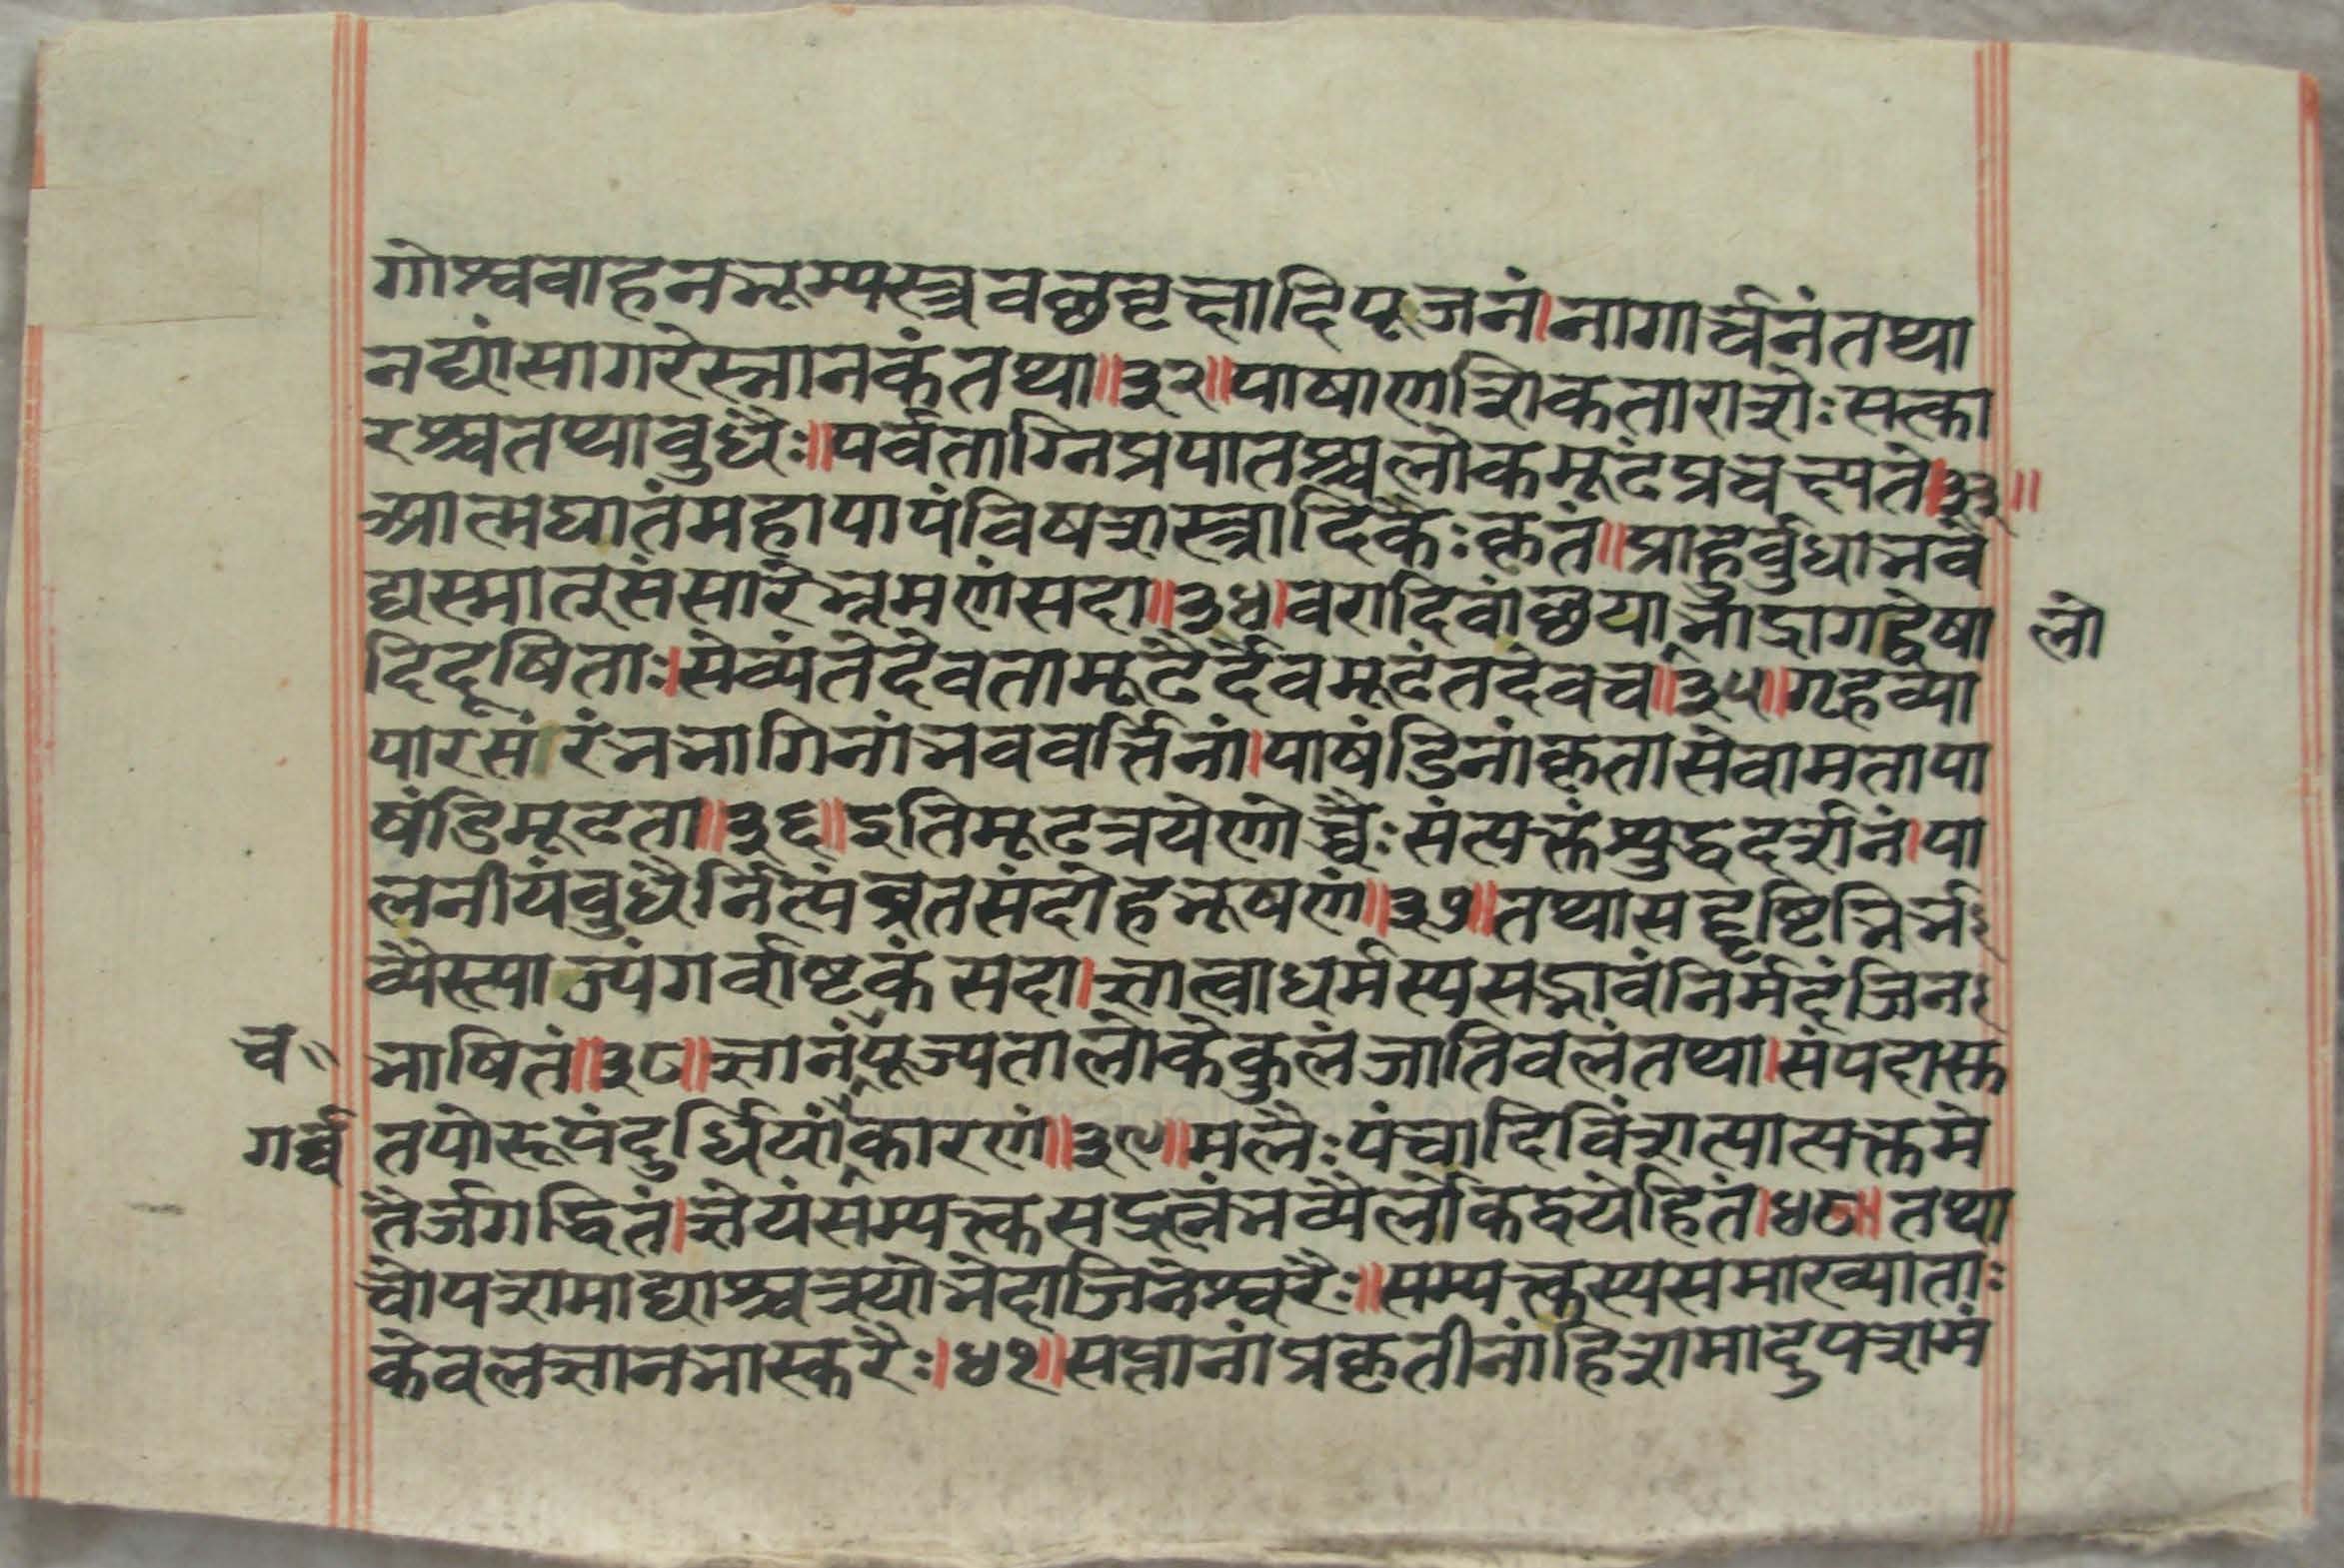 गोश्ववाहनभूम्यस्त्रवटवृक्षादिपूजनं।नागार्चनंतथा
नद्यांसागरेस्नानकंतथा॥३२॥पाषाणशिकताराशेःसत्का
रश्चतथाबुधैः॥पर्वताग्निप्रपातश्चलोकमूढंप्रचक्ष्यते॥३३॥
आत्मघातंमहापापंविषशस्त्रादिकैःकृतं॥प्राहुर्बुधाभवे
द्यस्मात्संसारेभ्रमणंसदा॥३४।वरादिवांछयाभाद्रागद्वेषा
लो
दिदूषिताः।सेव्यंतेदेवतामूढैर्देवमूढंतदेवच॥३५॥गृहव्या
पारसारंभभागिनांभववर्त्तिनां।पाषंडिनांकृतासेवामतापा
षंडिमूढता॥३६॥इतिमूढत्रयेणोच्चैःसंत्यक्तंशुद्धदर्शनं।पा
लनीयंबुधैर्नित्यंव्रतसंदोहभूषणं॥३७॥तथासद्दृष्टिभिर्भ
व्यैस्त्याज्यंगर्वाष्टकंसदा।ज्ञात्वाधर्मस्यसद्भावंनिर्मदंजिन
च॥ भाषितं॥३८॥ज्ञानंपूज्यतालोकेकुलंजातिबलंतथा।संपदास्त
गर्व्व तपोरूपंदुर्धियांकारणं॥३९॥मलैःपंचादिविंशत्यात्यक्तमे
तैर्जगद्धितं।ज्ञेयंसम्यक्त्वसद्रत्नंभव्यैर्लोकद्वयेहितं।४०॥तथा
चोपशमाद्याश्चत्रयोभेदाजिनेश्वरैः॥सम्यक्त्वस्यसमाख्याताः
केवलज्ञानभास्करैः।४१॥सप्तानांप्रकृतीनांहिशमादुपशमं